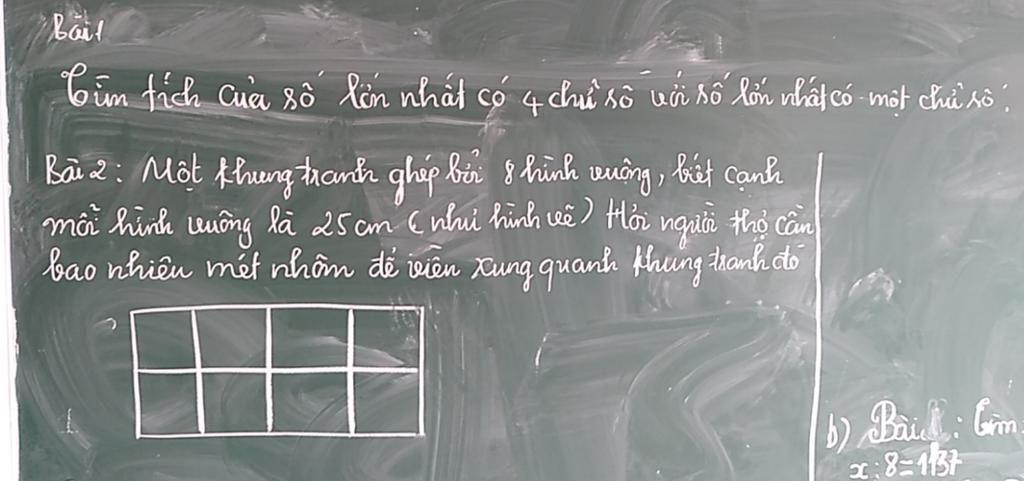 Bài 1
Tìm tích của số lớn nhất có 4 chữ số với số lớn nhất có một chữ số.
Bài 2: Một khung tranh ghép bởi 8 hình vuông, biết cạnh
mỗi hình vuông là 25 cm (như hình vẽ) Hỏi người thợ cần
bao nhiêu mét nhôm để viền xung quanh khung tranh đó
b) Bài : Tìm
x : 8 = 1137